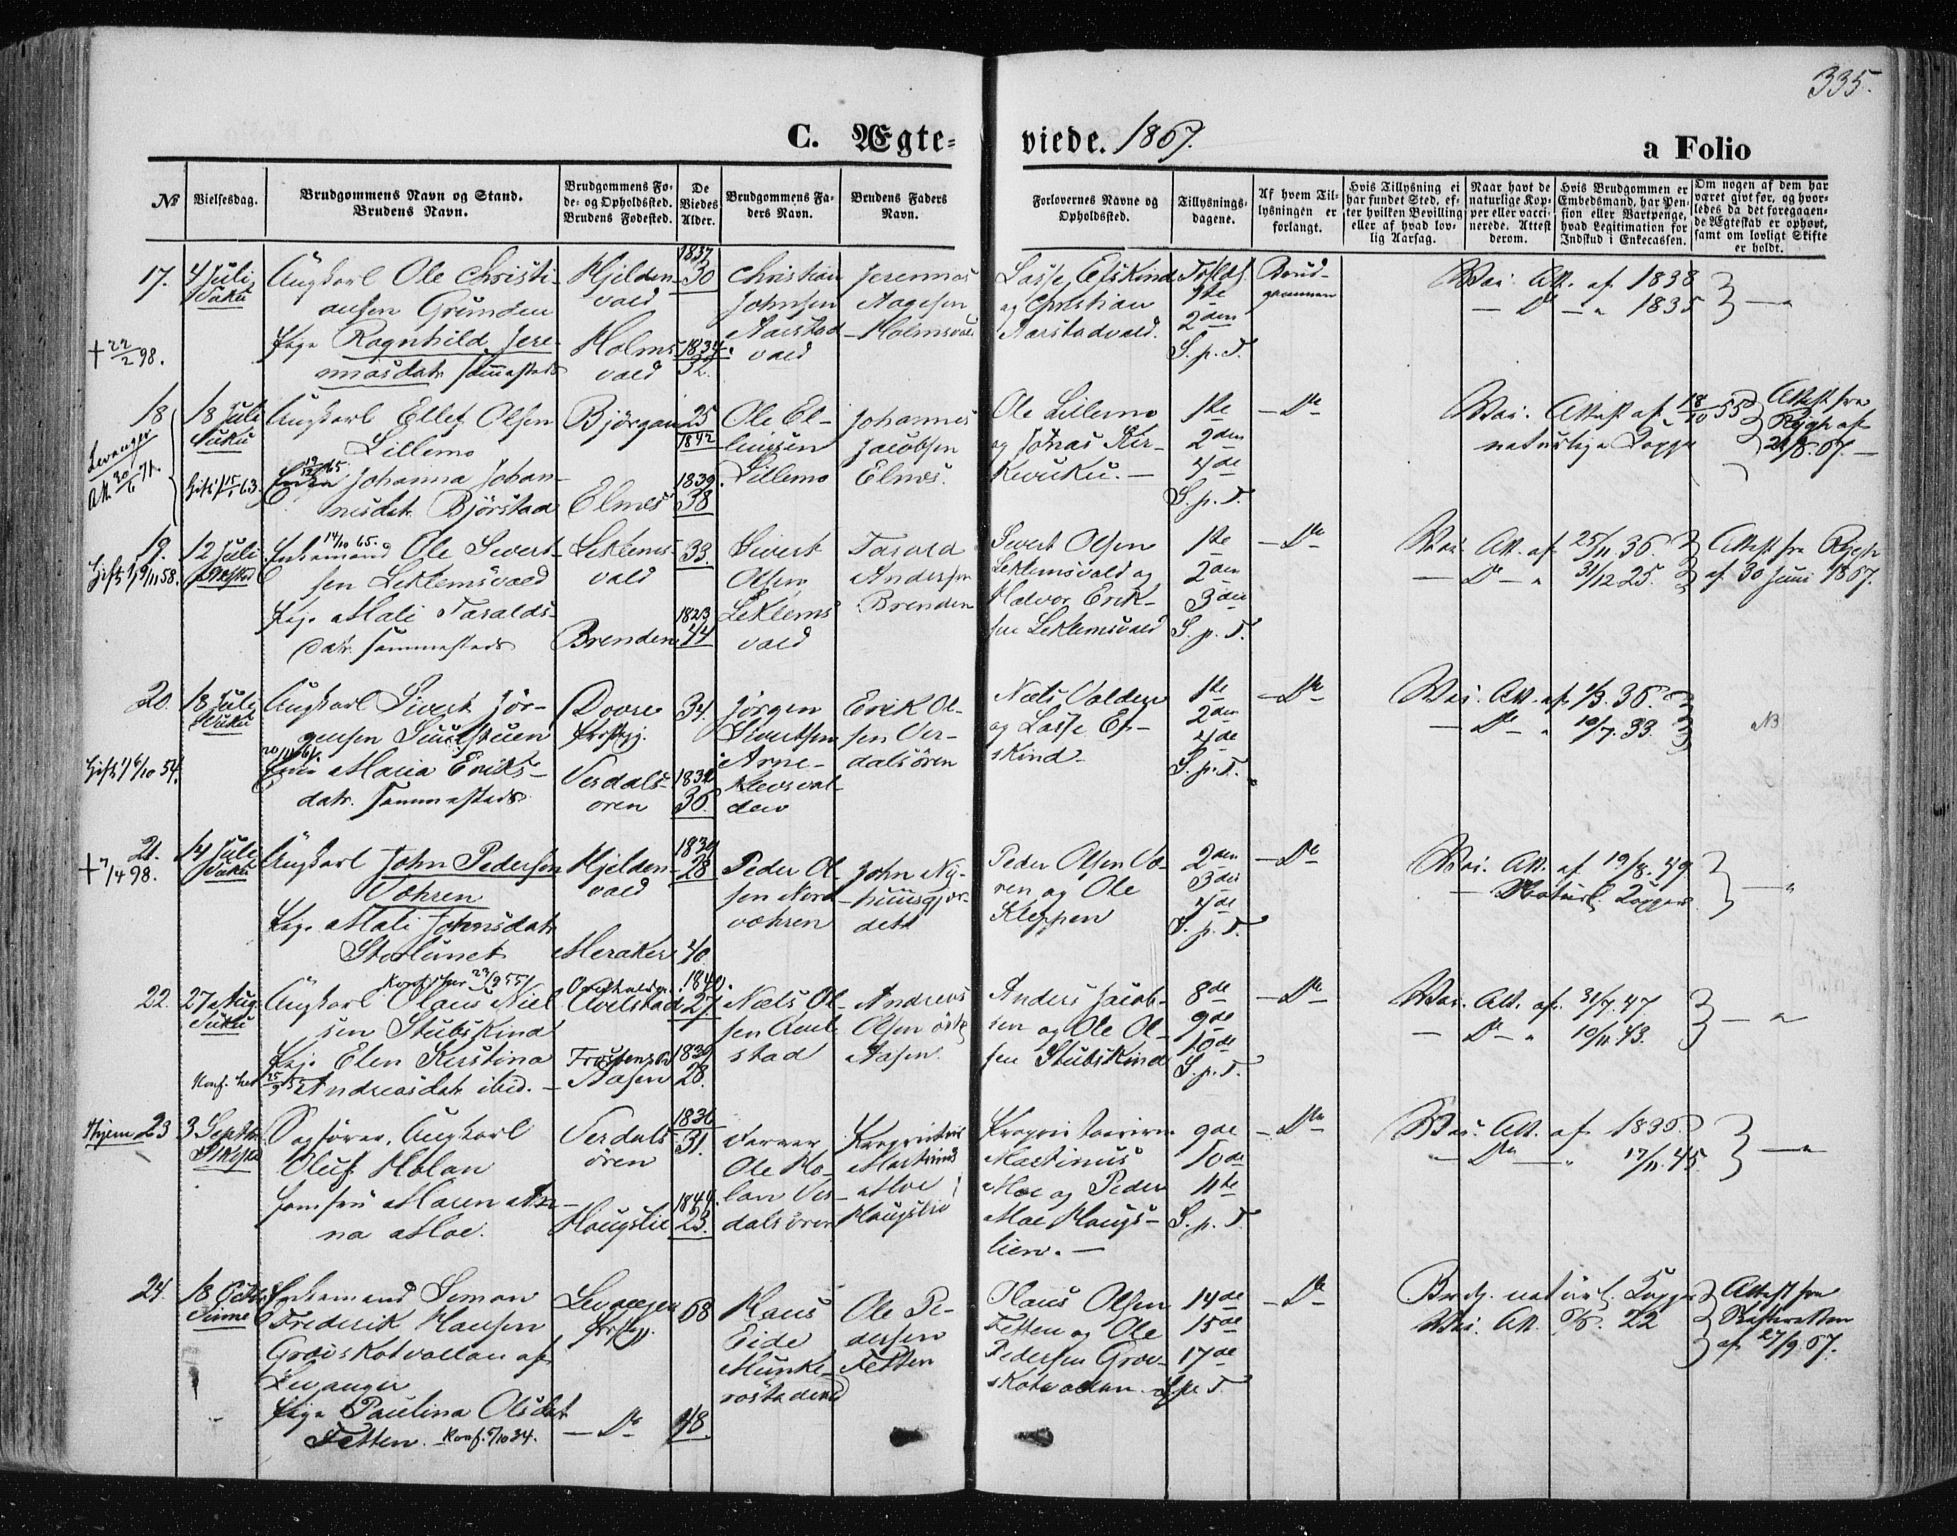 335.
C. Ægte-
viede. 1867.
a Folio
No
Vielsesdag.
Brudgommens Navn og Stand.
Brudens Navn.
Brudgommens Fo-
de- og Opholdssted.
Brudens Fodested.
De
Viedes
Alder.
Brudgommens Fa-
ders Navn.
Brudens Faders
Navn.
Forlovernes Navne og
Opholdssted.
Tillysnings-
dagene.
Af hvem Til-
lysningen er
forlangt.
Hvis Tillysning ei
har fundet Sted, ef-
ter hvilken Bevilling
eller af hvad lov-
lig Aarsag.
Naar havt de
naturlige Kop-
per eller vacci-
nerede. Attest
derom.
Hvis Brudgommen er
Embedsmand, har Pen-
sion eller Vartpenge,
hvad Legitimation for
Indskud i Enkecassen.
Om nogen af dem har
været givt før, og hvor-
ledes da det foregagen-
de Ægteskab er ophørt,
samt om lovligt Skifte
er holdt.
17.
4 Juli
Vuku
Ungkarl Ole Christi-
ansen Grunden
Pige Ragnhild Jere-
miasdatr. sammesteds
+ 22/2 98.
Hjelden-
vald
Holms
vald
1837
30
1834.
32.
Christian
Johnsen
Aarstad
vald
Jeremias
Aagesen
Holmsvald
Lasse Efskind
og Christian
Aarstadvald.
1ste
2den
S. p. T.
Brud-
gommen
Vac. Att. af 1838
— Do — " 1835
18
18 Juli
Vuku
Ungkarl Ellef Olsen
Lillemo
Johanna Johan-
nesdatr. Bjørstad
Levanger
Att. 30/6 71.
Gift 1) 15/1 63.
Bjørgan
Elmes
25
1842
1839.
38
Ole El-
lingsen
Lillemo
Johannes
Jacobsen
Elmes.
Ole Lillemo
og Jonas Kir-
kevuku. —
1ste
2den
4de
S. p. T.
— Do —
Vac. Attest af 18/10 55
naturlige Kopper
Attest fra
Rygh af
21/8. 67. —
19.
12 Juli
Enkemand Ole Sivert-
sen Leklemsvald
Pige Mali Taralds-
datr. sammesteds
Leklems-
vald
Brenden
33.
1823
44
Sivert
Olsen
Leklems
vald
Tarald
Andersen
Brenden
Sivert Olsen
Leklemsvald og
Halvor Erik-
sen Leklemsvald
1ste
2den
3die
S. p. T.
— Do —
Vac. Att. af 25/11. 36.
— Do — " 31/12 25.
Attest fra Rygh
af 30 Juni 1867.
20.
18 Juli
Vuku
Ungkarl Sivert Jør-
gensen Sundstuen
Enke Maria Eriks-
datr. sammesteds
Gift 1) 6/10 54.
Dovre
Prstgj.
Verdals-
øren
34.
36.
Jørgen
Sivertsen
Arne-
Klevsval-
den
Erik Ol-
sen Ver-
dalsøren
Niels Valden
og Lasse Ef-
skind.
1ste
2den
4de
S. p. T.
— Do —
— Do — " 10/7. 33.
NB
21.
14 Juli
Vuku
+ 7/4 98.
Ungkarl John Pedersen
Vohren
Pige Mali Johnsdatr.
Storlunet
Hjelden-
vald
Meraker
1839
28
40.
Peder Ol-
sen Nord
vohren
John Ny-
huusgjær-
dett
Peder Olsen Vo-
ren og Ole
Kleppen
2den
3die
4de
S. p. T.
— Do —
Vac. Att. af 19/8. 49
— Naturl. Kopper
22.
27 Aug.
Vuku
Ungkarl Olaus Niel-
sen Stubskind
Pige Elen Kirstina
Andreasdatr. ibid. —
Overhalden
Avelstad
Frosten
Aasen
1840.
27.
1839
28.
Niels Ol-
sen Avel-
stad
Andreas
Olsen
Aasen.
Anders Jacob-
sen og Ole Ol-
sen Stubskind
8de
9de
10de
S. p. T.
— Do —
Vac. Att. af 31/7. 47
— Do — " 19/11. 43.
Hjem
23
3 Septbr.
Sagfører, Ungkarl
Oluf Holan
Jomfru Maren An-
na Moe.
Verdals
øren
Haugslie
1836
31.
1844.
23.
Værver
Ole Ho-
lan Ver-
dalsøren
Proprietær
Martinus
Moe
Haugslie
Proprietærerne
Martinus
Moe og Peder
Moe Haugs-
lien. —
9de
10de
11te
S. p. T.
— Do —
Vac. Att. af 1836.
— Do — " 17/11. 45.
24.
18 Octbr.
Vinne
Enkemand Simon
Frederik Hansen
Græiskotvollan af
Levanger
Pige Paulina Olsdat.
Fætten. Konf. 5/10 34.
Levanger
Prstgj.
— Do —
68
48.
Hans
Eide
Munke-
Ole Pe-
dersen
Fætten
Olaus Olsen
Fætten og Ole
Pedersen Græi-
skotvollan.
14de
15de
17de
S. p. T.
— Do —
Brdg. naturl. Kopper
Attest fra
Skifteretten
af 27/9 67.